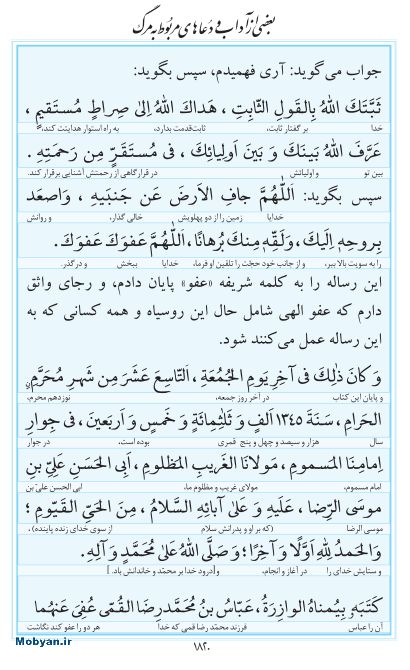 بعضی از آداب و دعاهای مربوط به مرگ
جواب می‌گوید: آری فهمیدم، سپس بگوید:
ثَبَّتَكَ اللهُ بِالقَولِ الثّابِتِ ، هَداكَ اللهُ اِلىٰ صِراطٍ مُستَقيمٍ ،
خدا بر گفتار ثابت، ثابت‌قدمت بدارد، به راه استوار هدایتت کند،
عَرَّفَ اللهُ بَينَكَ وَ بَينَ اَولِيائِكَ ، فى مُستَقَرٍّ مِن رَحمَتِهِ .
بین تو و اولیائش در قرارگاهی از رحمتش آشنایی برقرار کند.
سپس بگوید: اَللّٰهُمَّ جافِ الاَرضَ عَن جَنبَيهِ ، وَاصعَد
خدایا زمین را از دو پهلویش خالی گذار، و روانش
بِروحِهِ اِلَيكَ ، وَلَقِّهِ مِنكَ بُرهانًا، اَللّٰهُمَّ عَفوَكَ عَفوَكَ .
را به سویت بالا ببر، و از جانب خود حجّت را تلقین او فرما، خدایا ببخش و در گذر.
این رساله را به کلمه شریفه «عفو» پایان دادم، و رجای واثق
دارم که عفو الهی شامل حال این روسیاه و همه کسانی که به
این رساله عمل می‌کنند شود.
وَ كانَ ذٰلِكَ فى آخِرِ يَومِ الجُمُعَةِ ، اَلتّاسِعَ عَشَرَ مِن شَهرِ مُحَرَّمٍ
و پایان این کتاب در آخر روز جمعه، نوزدهم محرم،
الحَرامِ ، سَنَةَ ١٣٤٥ اَلفٍ وَ ثَلٰثِمِائَةٍ وَ خَمسٍ وَ اَربَعينَ ، فى جِوارِ
سال هزار و سیصد و چهل و پنج قمری بوده است، در جوار
اِمامِنَا المَسمومِ ، مَولانَا الغَريبِ المَظلومِ ، اَبِى الحَسَنِ عَلِىِّ بنِ
امام مسموم، مولای غریب و مظلوم ما، ابی الحسن علیّ بن
موسَى الرِّضا ، عَلَيهِ وَ عَلىٰ آبائِهِ السَّلامُ ، مِنَ الحَىِّ القَيّومِ ؛
موسی الرضا (که بر او و پدرانش سلام از سوی خدای زنده پاینده) ،
وَالحَمدُ لِلّٰهِ اَوَّلًا وَ آخِرًا ؛ وَ صَلَّى اللهُ عَلىٰ مُحَمَّدٍ وَ آلِهِ .
و ستایش خدای را در آغاز و انجام، و [درود خدا بر محمّد و خاندانش باد.]
كَتَبَهُ بِيُمناهُ الوازِرَةِ ، عَبّاسُ بنُ مُحَمَّدرِضَا القُمّى عُفِىَ عَنهُما
آن را عباس فرزند محمّد رضا قمی که خدا هر دو را عفو کند نگاشت
١٨٢٠
Mobyan.ir